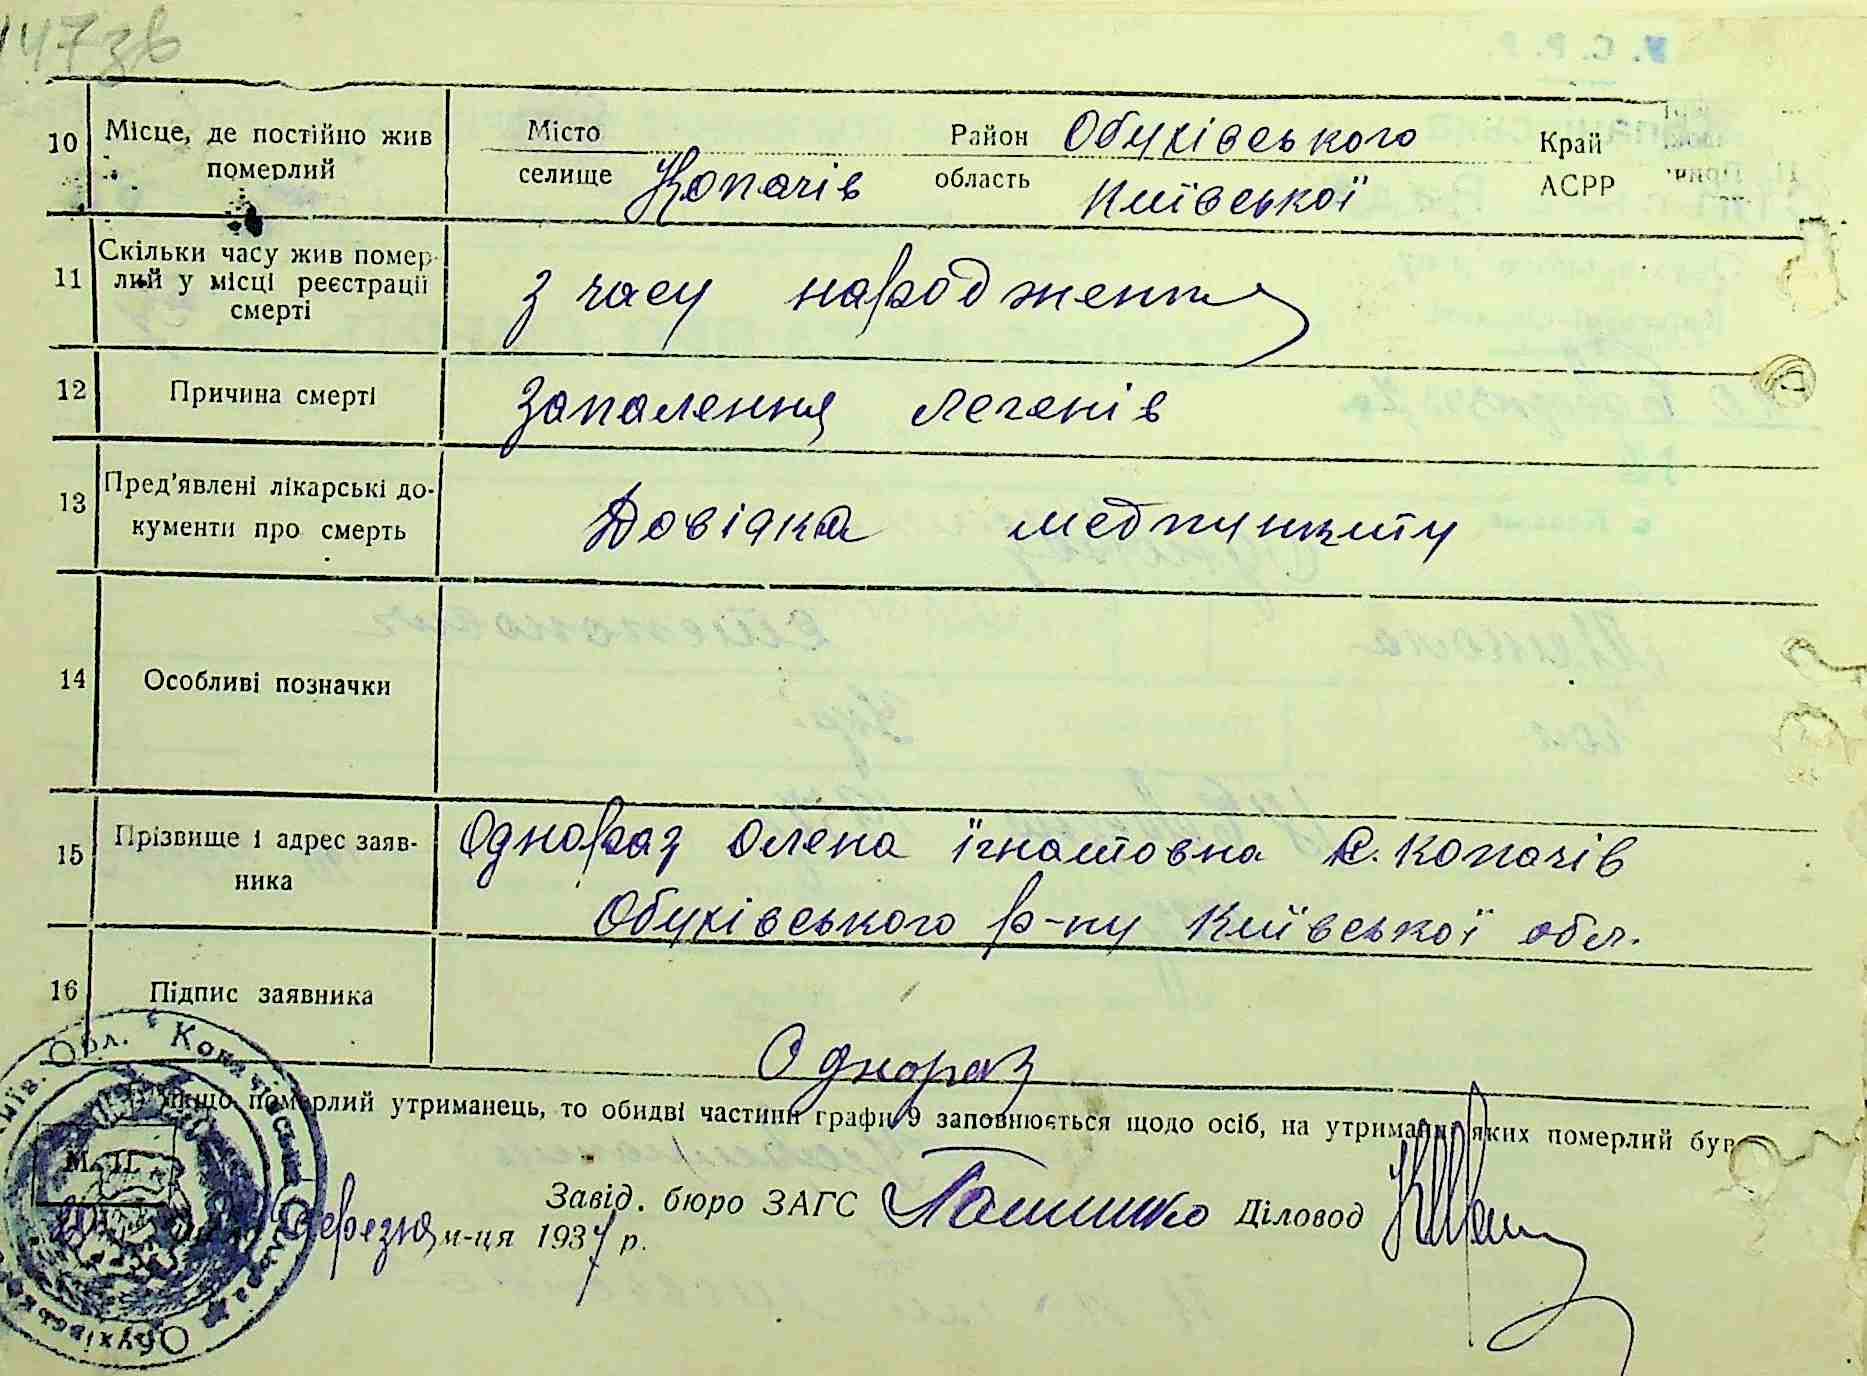 147зв
10 Місце, де постійно жив померлий
Місто
селище Копачів
Район Обухівського
область Київської
Край
АСРР
11 Скільки часу жив помер-
лий у місці реєстрації
смерті
з часу народження
12 Причина смерті
Запалення легенів
13 Пред'явлені лікарські до-
кументи про смерть
Довідка медпункту
14 Особливі позначки
15 Прізвище і адрес заяв-
ника
Еднораз Олена Їгнатовна с. Копачів
Обухівського р-ну Київської обл.
16 Підпис заявника
Еднораз
якщо померлий утриманець, то обидві частини графи 9 заповнюється щодо осіб, на утриманні яких померлий був
Завід. бюро ЗАГС Діловод
М. П.
березня м-ця 1937 р.
Київ. Обл. Копачівська Обухівськ